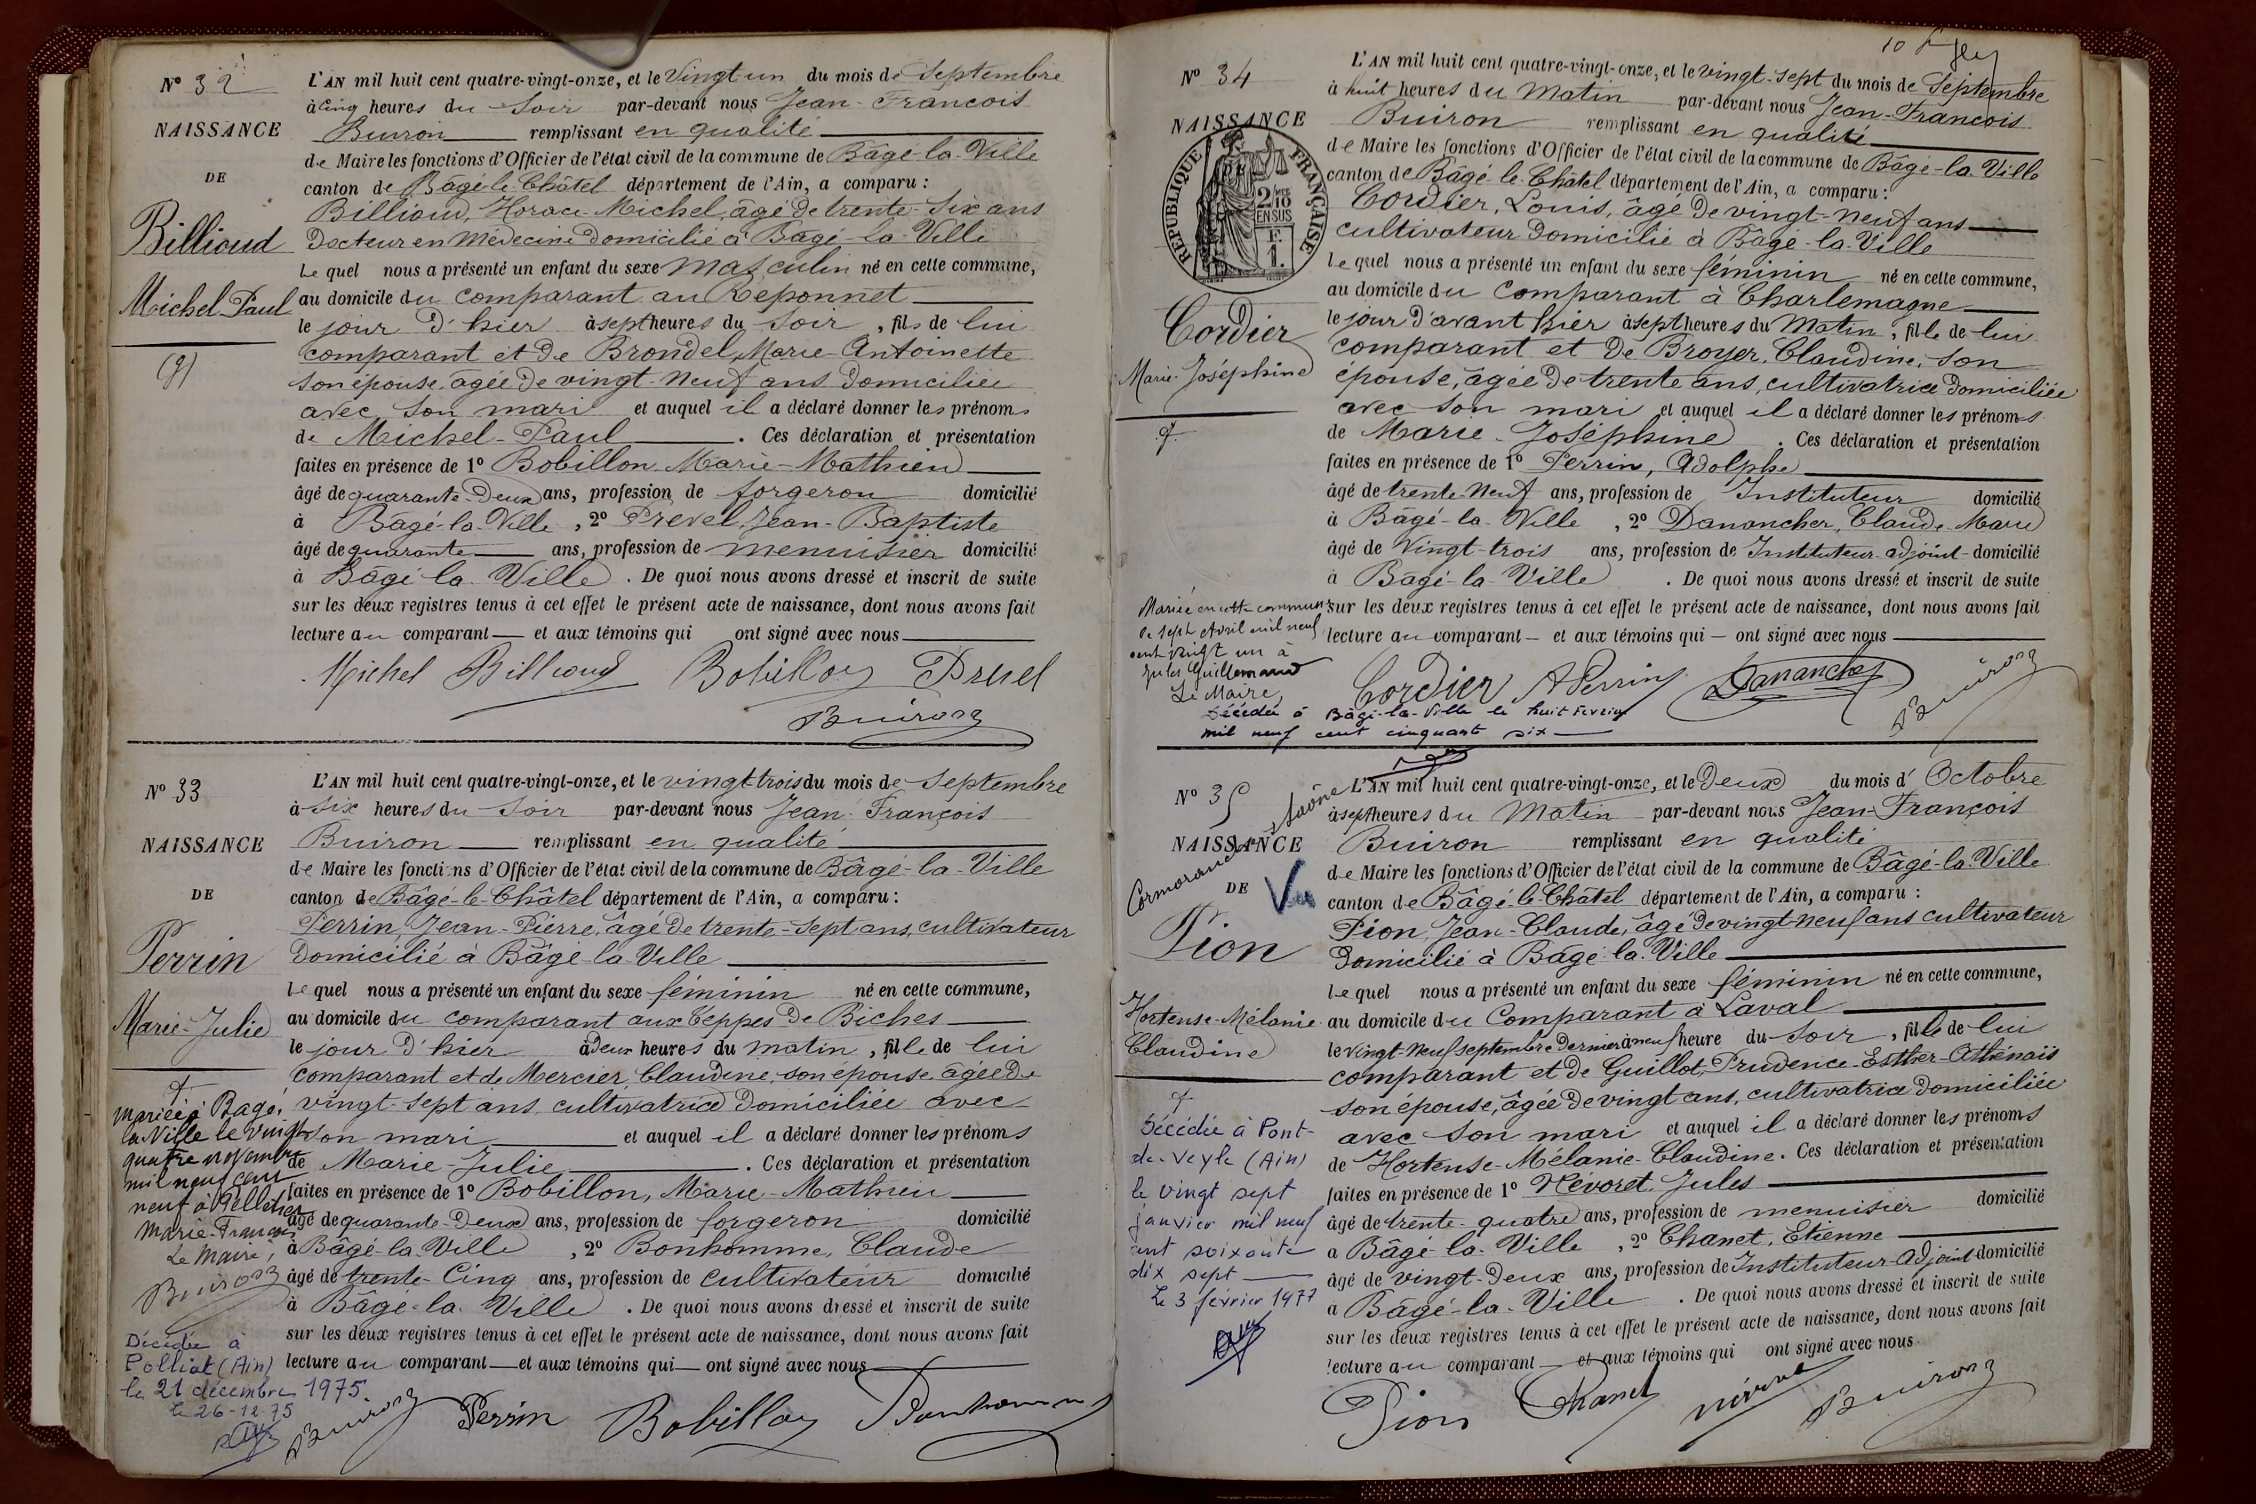 Nº 32
NAISSANCE
DE
Billioud
Michel Paul
(g)
L'AN mil huit cent quatre-vingt-onze, et le Vingt-un du mois de Septembre
à Cinq heures du Soir par-devant nous Jean-François
Buiron remplissant en qualité
de Maire les fonctions d'Officier de l'état civil de la commune de Bâgé-la-Ville
canton de Bâgé-le-Châtel département de l'Ain, a comparu :
Billioud, Horace-Michel, âgé de trente-six ans
Docteur en Médecine domicilié à Bâgé-la-Ville
Le quel nous a présenté un enfant du sexe masculin né en cette commune,
au domicile du comparant au Reponnet
le jour d'hier à sept heures du Soir, fils de lui
comparant et de Brondel, Marie-Antoinette
son épouse, âgée de vingt-neuf ans domiciliée
avec son mari et auquel il a déclaré donner les prénoms
de Michel-Paul. Ces déclaration et présentation
faites en présence de 1º Bobillon Marie-Mathieu
âgé de quarante-deux ans, profession de forgeron domicilié
à Bâgé-la-Ville, 2º Prevel Jean-Baptiste
âgé de quarante ans, profession de menuisier domicilié
à Bâgé-la-Ville. De quoi nous avons dressé et inscrit de suite
sur les deux registres tenus à cet effet le présent acte de naissance, dont nous avons fait
lecture au comparant et aux témoins qui ont signé avec nous
Michel Billioud Bobillon Prevel
Buiron
Nº 33
NAISSANCE
DE
Perrin
Marie-Julie
f
Mariée à Bagé
la Ville le vingt
quatre novembre
mil neuf cent
neuf à Pelletier
Marie-François
Le Maire,
Buiron
Décédée à
Polliat (Ain)
le 21 décembre 1975.
le 26-12-75
L'AN mil huit cent quatre-vingt-onze, et le vingt-trois du mois de Septembre
à Six heures du Soir par-devant nous Jean-François
Buiron remplissant en qualité
de Maire les fonctions d'Officier de l'état civil de la commune de Bâgé-la-Ville
canton de Bâgé-le-Châtel département de l'Ain, a comparu :
Perrin, Jean-Pierre, âgé de trente-sept ans, cultivateur
domicilié à Bâgé-la-Ville
Le quel nous a présenté un enfant du sexe féminin né en cette commune,
au domicile du comparant aux Teppes de Biches
le jour d'hier à deux heures du matin, fille de lui
comparant et de Mercier, Claudine, son épouse, âgée de
vingt-sept ans, cultivatrice domiciliée avec
son mari et auquel il a déclaré donner les prénoms
de Marie-Julie. Ces déclaration et présentation
faites en présence de 1º Bobillon, Marie-Mathieu
âgé de quarante-deux ans, profession de forgeron domicilié
à Bâgé-la-Ville, 2º Bonhomme, Claude
âgé de trente-cinq ans, profession de cultivateur domicilié
à Bâgé-la-Ville. De quoi nous avons dressé et inscrit de suite
sur les deux registres tenus à cet effet le présent acte de naissance, dont nous avons fait
lecture au comparant et aux témoins qui ont signé avec nous
Buiron Perrin Bobillon Bonhomme
Nº 34
NAISSANCE
RÉPUBLIQUE FRANÇAISE
2/10 EN SUS
F. 1.
Cordier
Marie-Joséphine
f.
Mariée en cette commune
le sept Avril mil neuf
cent vingt un à
Jules Guillemaud
Le Maire,
Décédée à Bâgé-la-Ville le huit Février
mil neuf cent cinquante six
L'AN mil huit cent quatre-vingt-onze, et le vingt-sept du mois de Septembre
à huit heures du Matin par-devant nous Jean-François
Buiron remplissant en qualité
de Maire les fonctions d'Officier de l'état civil de la commune de Bâgé-la-Ville
canton de Bâgé-le-Châtel département de l'Ain, a comparu :
Cordier, Louis, âgé de vingt-neuf ans
cultivateur domicilié à Bâgé-la-Ville
Le quel nous a présenté un enfant du sexe féminin né en cette commune,
au domicile du comparant à Charlemagne
le jour d'avant hier à sept heures du Matin, fille de lui
comparant et de Broyer, Claudine, son
épouse, âgée de trente ans, cultivatrice domiciliée
avec son mari et auquel il a déclaré donner les prénoms
de Marie-Joséphine. Ces déclaration et présentation
faites en présence de 1º Perrin, Adolphe
âgé de trente-neuf ans, profession de Instituteur domicilié
à Bâgé-la-Ville, 2º Danancher, Claude-Marie
âgé de Vingt-trois ans, profession de Instituteur-adjoint domicilié
à Bâgé-la-Ville. De quoi nous avons dressé et inscrit de suite
sur les deux registres tenus à cet effet le présent acte de naissance, dont nous avons fait
lecture au comparant et aux témoins qui ont signé avec nous
Cordier A Perrin Danancher Buiron
Nº 35
NAISSANCE
DE
Cormoranche s/Saône
Vu
Pion
Hortense-Mélanie
Claudine
f
Décédée à Pont-
de-Veyle (Ain)
le vingt sept
janvier mil neuf
cent soixante
dix sept
Le 3 février 1977
L'AN mil huit cent quatre-vingt-onze, et le Deux du mois d'Octobre
à sept heures du Matin par-devant nous Jean-François
Buiron remplissant en qualité
de Maire les fonctions d'Officier de l'état civil de la commune de Bâgé-la-Ville
canton de Bâgé-le-Châtel département de l'Ain, a comparu :
Pion, Jean-Claude, âgé de vingt-neuf ans cultivateur
domicilié à Bâgé-la-Ville
Le quel nous a présenté un enfant du sexe féminin né en cette commune,
au domicile du Comparant à Laval
le Vingt-neuf septembre dernier à neuf heure du Soir, fille de lui
comparant et de Guillot, Prudence-Esther-Athénaïs
son épouse, âgée de vingt ans, cultivatrice domiciliée
avec son mari et auquel il a déclaré donner les prénoms
de Hortense-Mélanie-Claudine. Ces déclaration et présentation
faites en présence de 1º Névoret, Jules
âgé de trente-quatre ans, profession de menuisier domicilié
à Bâgé-la-Ville, 2º Chanet, Etienne
âgé de vingt-deux ans, profession de Instituteur-Adjoint domicilié
à Bâgé-la-Ville. De quoi nous avons dressé et inscrit de suite
sur les deux registres tenus à cet effet le présent acte de naissance, dont nous avons fait
lecture au comparant et aux témoins qui ont signé avec nous
Pion Chanet Buiron